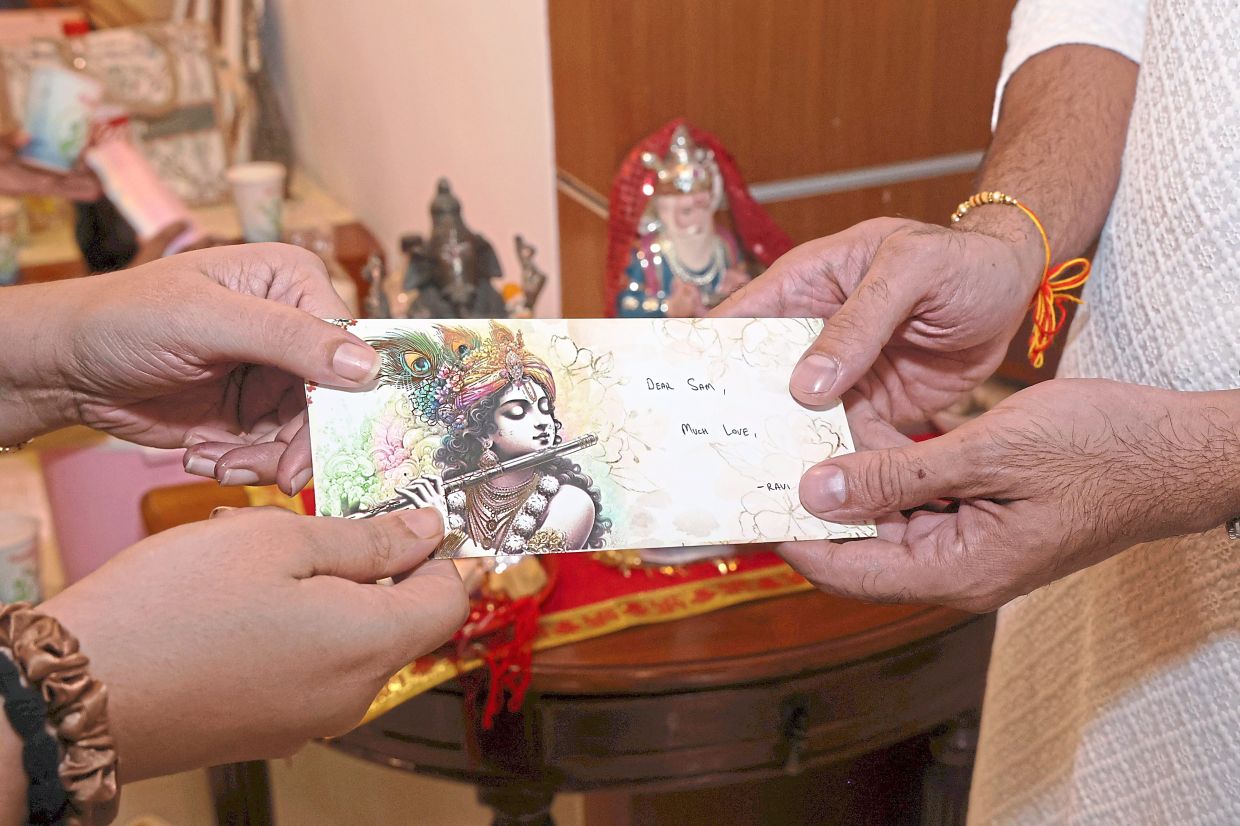 DEAR SAM,
MUCH LOVE,
-RAVI